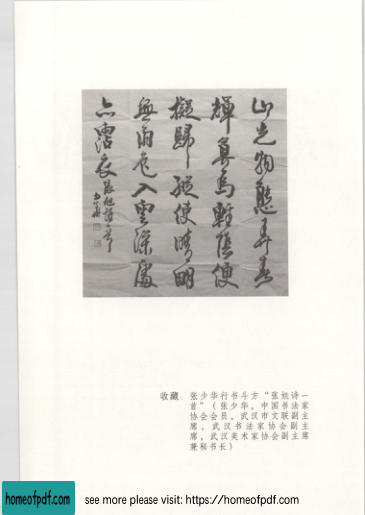 山光物態弄春
輝莫為輕陰便
擬歸縱使晴明
無雨色入雲深處
亦霑衣
張旭詩一首
少華
收藏：张少华行书斗方“张旭诗一
首”（张少华，中国书法家
协会会员，武汉市文联副主
席，武汉书法家协会副主
席，武汉美术家协会副主席
兼秘书长）
homeofpdf.com see more please visit: https://homeofpdf.com